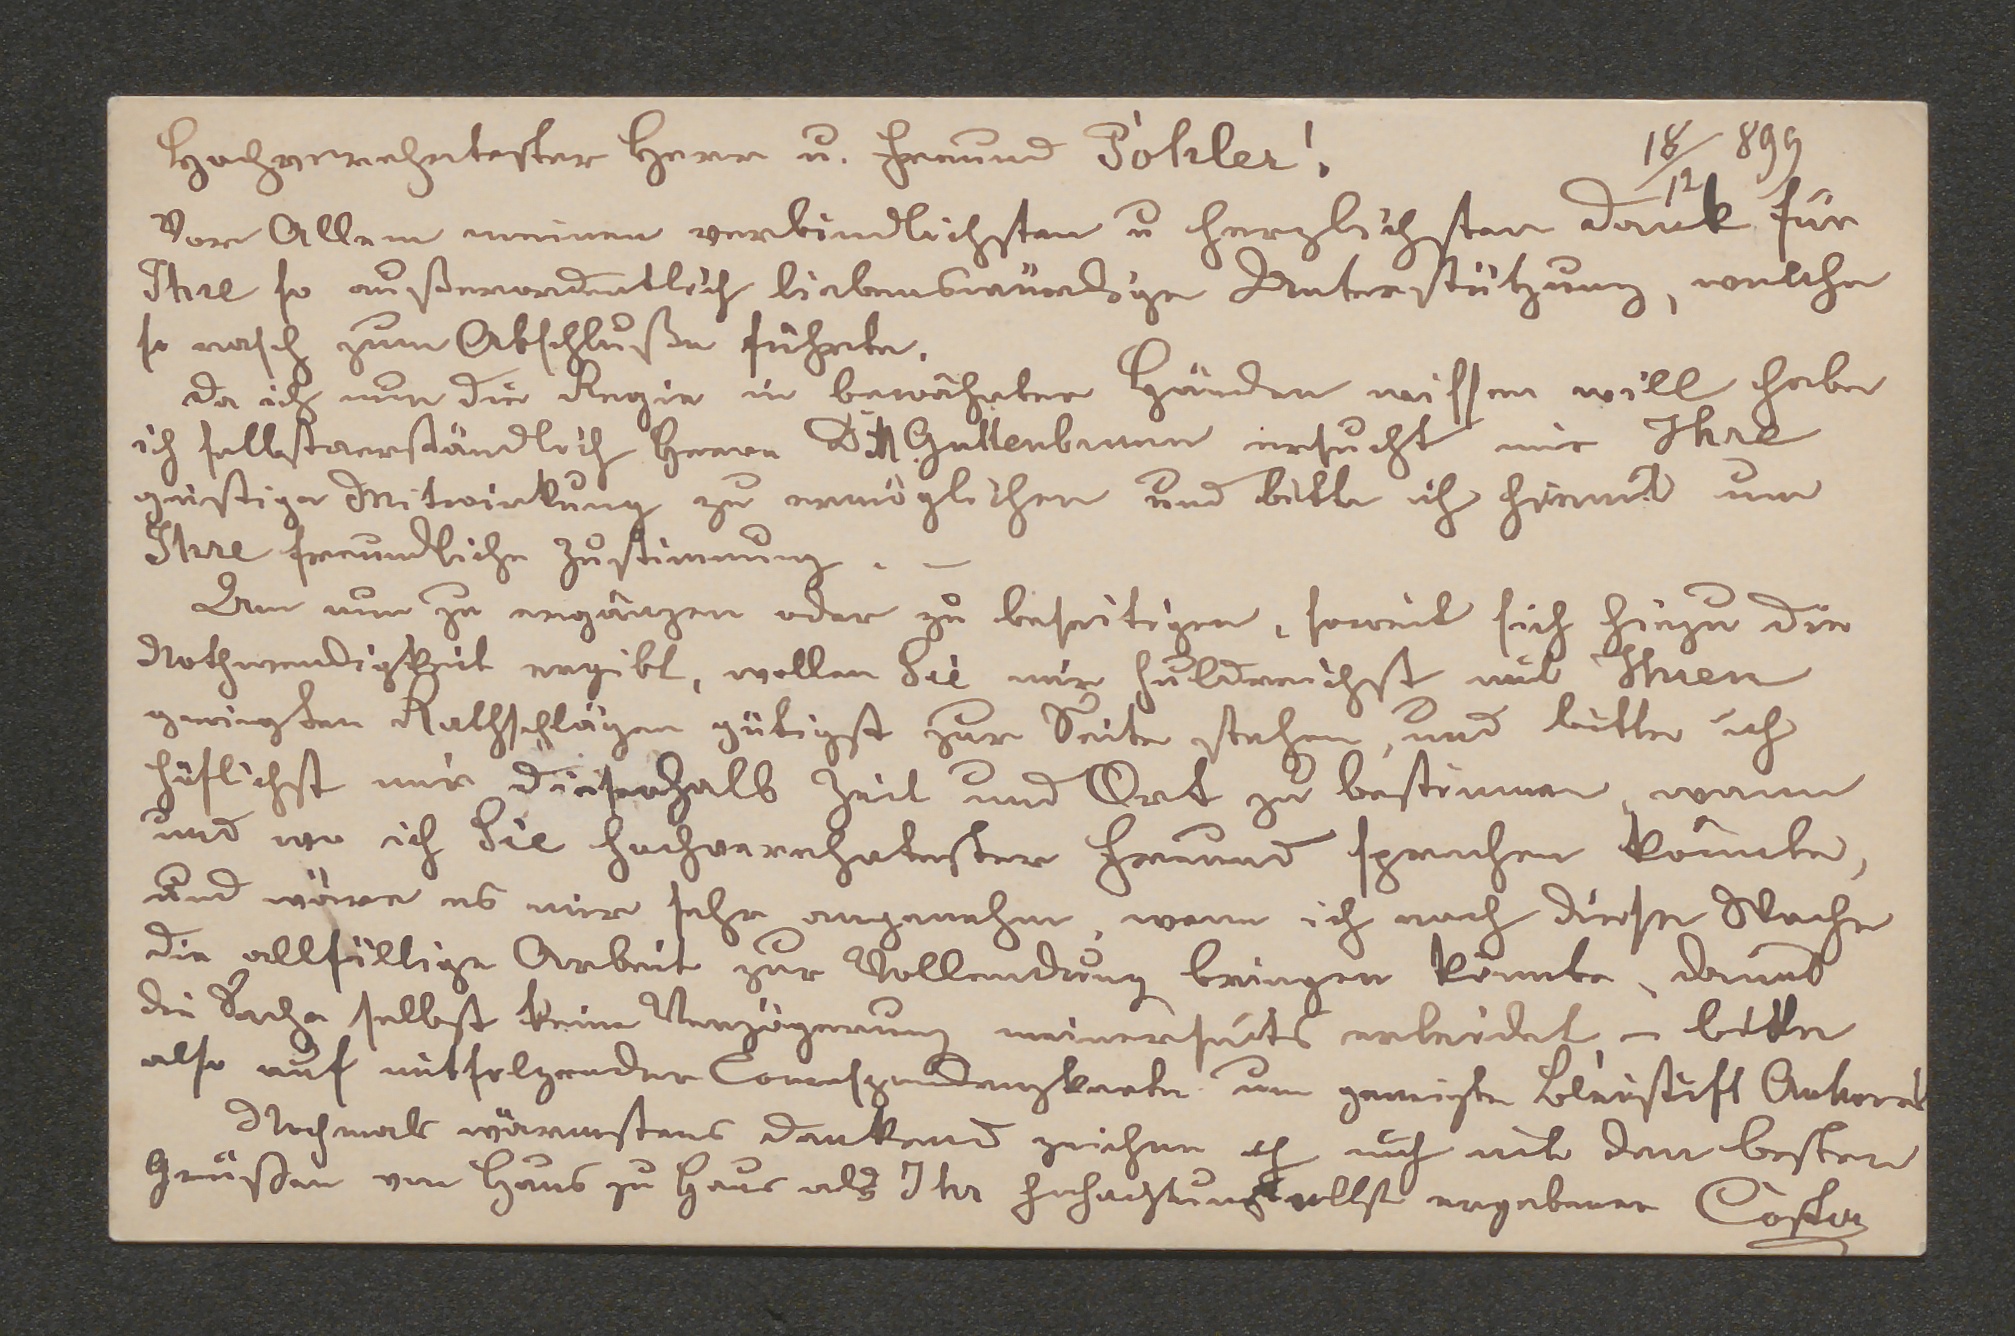 Hochverehrtester Herr u. Freund Pohler!
18/12 899
Vor Allem meinen verbindlichsten u herzlichsten Dank für
Ihre so außerordentlich liebenswürdige Unterstützung, welche
so rasch zum Abschluße führte.
Da ich nun die Regie in bewährten Händen wissen will habe
ich selbstverständlich Herrn Dir. M. Guttenbrunn ersucht mir Ihre
günstige Mitwirkung zu ermöglichen und bitte ich hiemit um
Ihre freundliche Zustimmung. —
Um nun zu ergänzen oder zu beseitigen, soweit sich hiezu die
Nothwendigkeit ergibt, wollen Sie mir huldreichst mit Ihren
geneigten Rathschlägen gütigst zur Seite stehen, und bitte ich
höflichst mir dieserhalb Zeit und Ort zu bestimmen, wann
und wo ich Sie hochverehrtester Freund sprechen könnte,
und wäre es mir sehr angenehm, wenn ich noch diese Woche
die allfällige Arbeit zur Vollendung bringen könnte, damit
die Sache selbst keine Verzögerung meinerseits erleidet – bitte
also auf mitfolgender Correspondenzkarte um geneigte Bleistift Antwort
Nochmals wärmstens dankend zeichne ich mich mit den besten
Grüßen von Haus zu Haus als Ihr hochachtungsvollst ergebener Costa